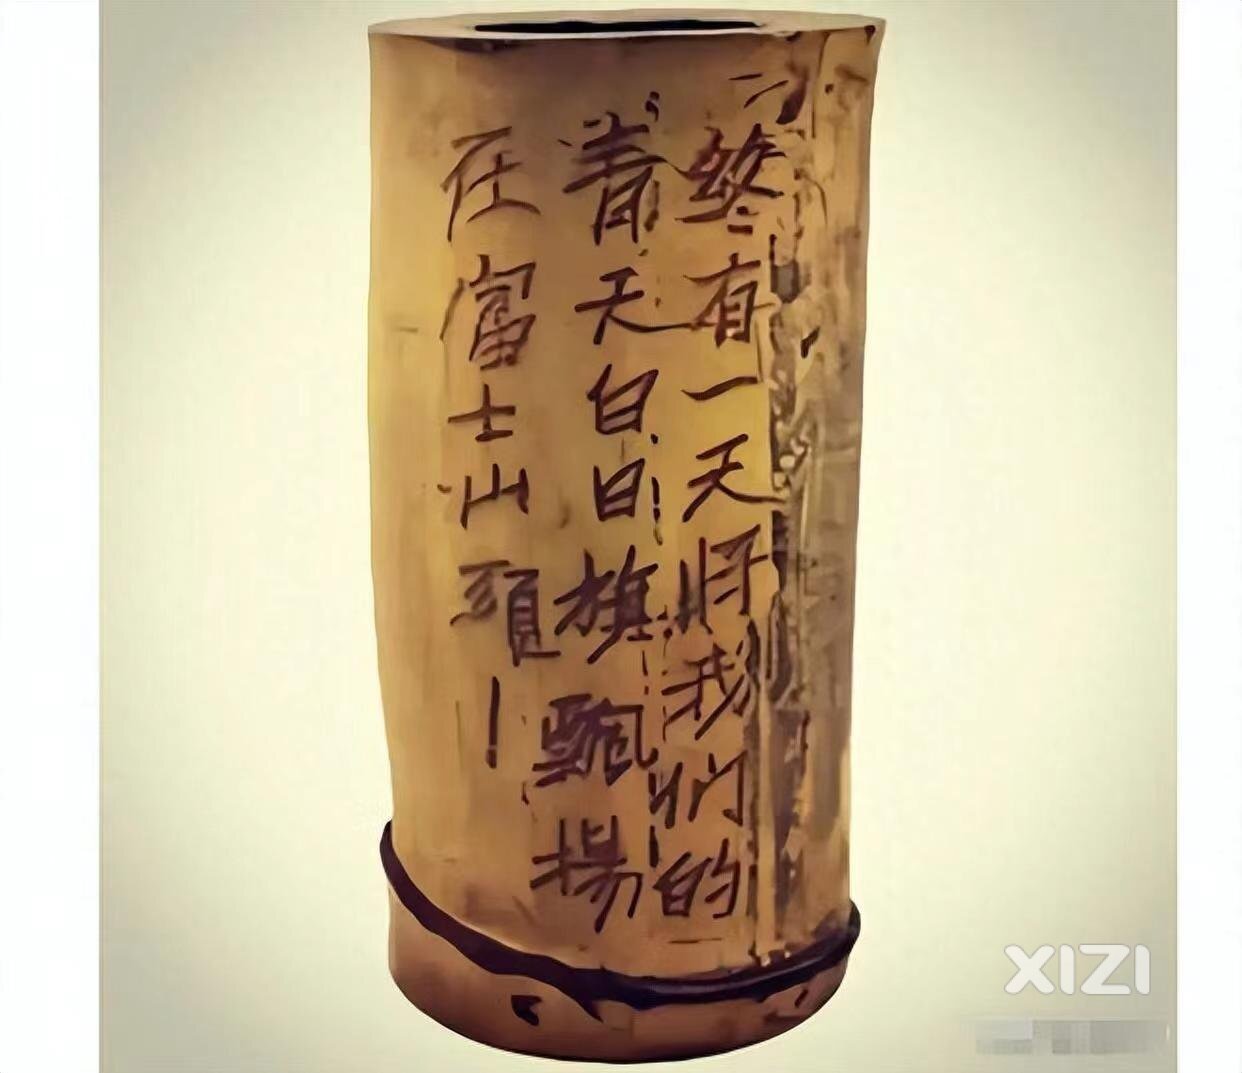 终有一天将我们的
青天白日旗飄揚
在富士山頭！
XIZI